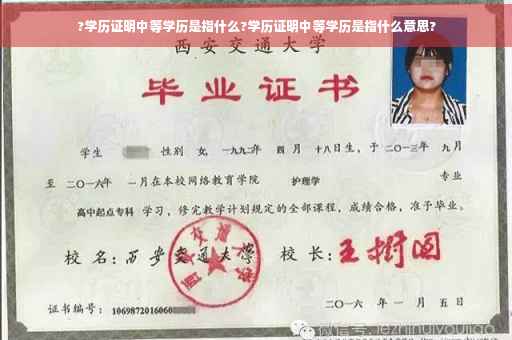 ?学历证明中等学历是指什么?学历证明中等学历是指什么意思?
西安交通大学
毕业证书
学生 性别 女, 一九九二年 四月 十八日生, 于 二〇一三年 九月
至 二〇一六年 一月在本校网络教育学院 护理学 专业
高中起点专科 学习, 修完教学计划规定的全部课程, 成绩合格, 准予毕业。
校 名: 西安交通大学
校 长: 王树国
西安交通大学
证书编号: 1069872016060
二〇一六 年 一 月 五 日
微信号: jiezhihuiyoujiao